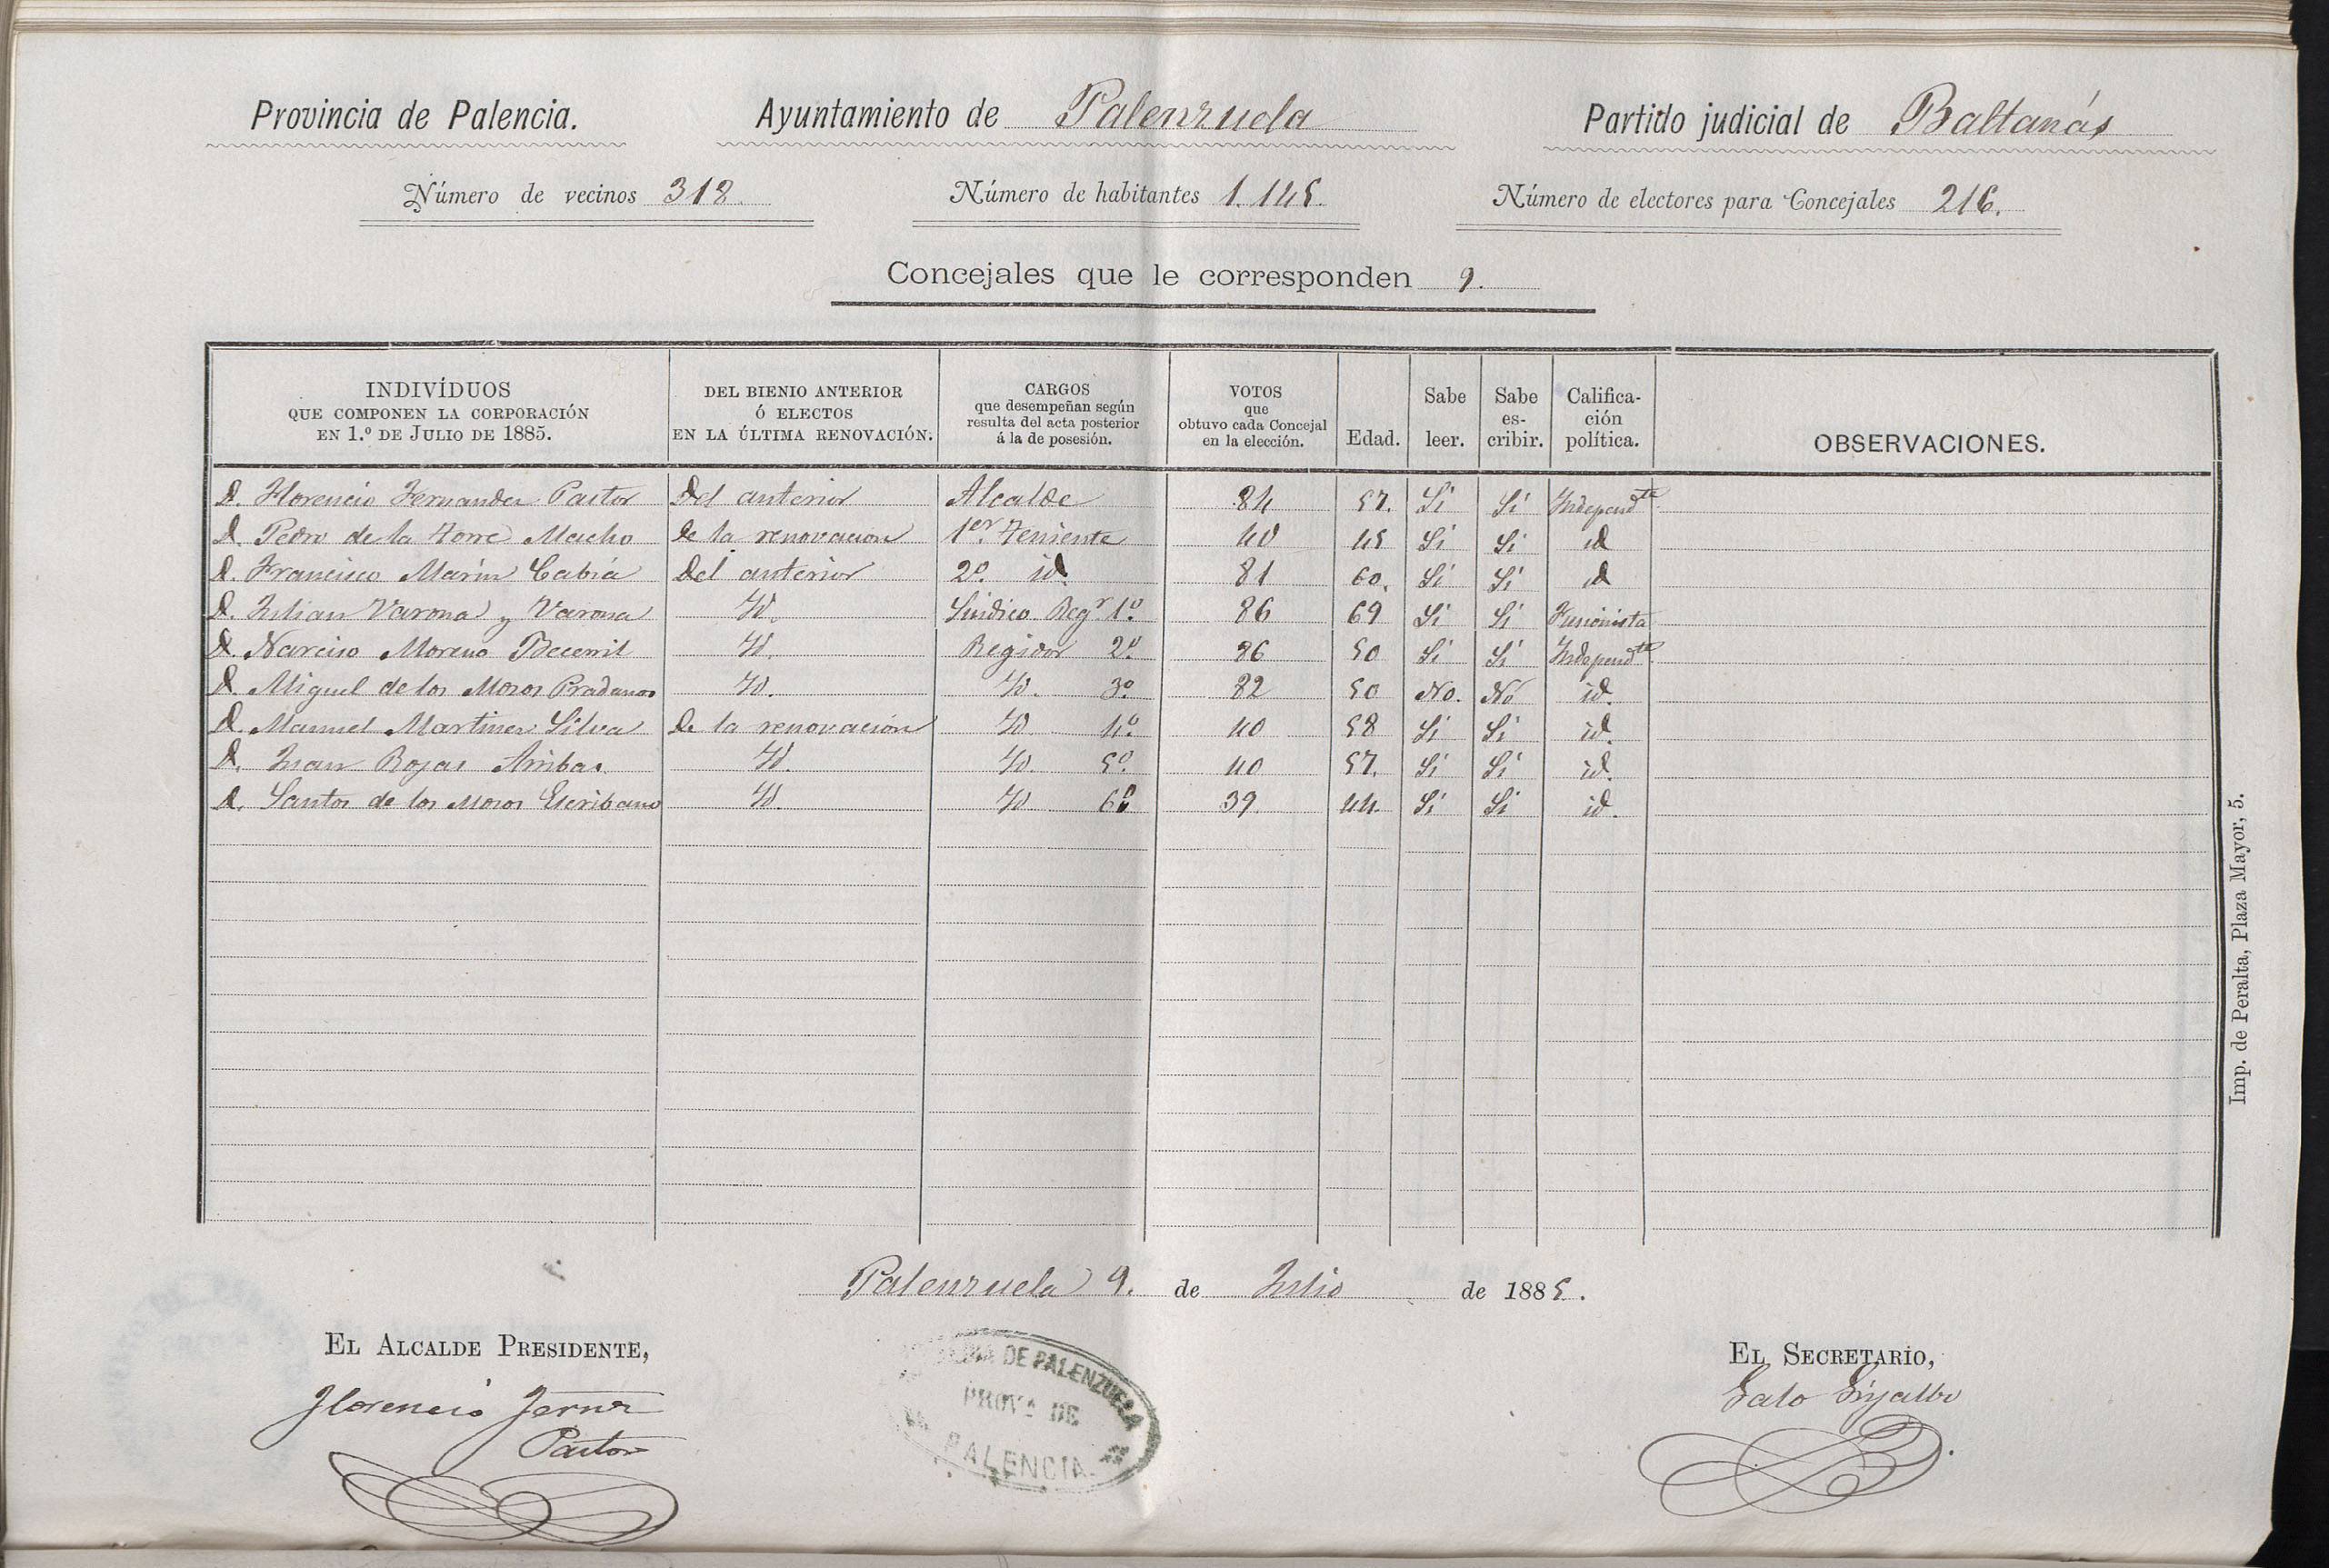 Provincia de Palencia. Ayuntamiento de Palenzuela Partido judicial de Baltanás
Número de vecinos 312. Número de habitantes 1.145. Número de electores para Concejales 216.
Concejales que le corresponden 9.
INDIVÍDUOS QUE COMPONEN LA CORPORACIÓN EN 1.º DE JULIO DE 1885. DEL BIENIO ANTERIOR Ó ELECTOS EN LA ÚLTIMA RENOVACIÓN. CARGOS que desempeñan según resulta del acta posterior á la de posesión. VOTOS que obtuvo cada Concejal en la elección. Edad. Sabe leer. Sabe es-cribir. Califica-ción política. OBSERVACIONES.
D. Florencio Fernandez Pastor Del anterior Alcalde 84 57. Si Si Independte.
D. Pedro de la Torre Macho de la renovacion 1er. Teniente 40 45 Si Si id
D. Francisco Marin Cabia Del anterior 2º. id. 81 60. Si Si id
D. Julian Varona y Varona Id. Sindico Regr. 1º. 86 69 Si Si Fusionista
D. Narciso Moreno Becerril Id. Regidor 2º. 86 50 Si Si Independte.
D. Miguel de los Mozos Pradanos Id. Id. 3º. 82 50 No. No id.
D. Manuel Martinez Silva de la renovación Id 4º. 40 58 Si Si id.
D. Juan Rojas Arribas. Id. Id. 5º. 40 57. Si Si id.
D. Santos de los Mozos Escribano Id. Id 6º 39 44. Si Si id.
Palenzuela 9. de Julio de 1885.
EL ALCALDE PRESIDENTE, EL SECRETARIO,
Florencio Fernz
Pastor
DE PALENZUELA
PROVª DE
PALENCIA
Imp. de Peralta, Plaza Mayor, 5.